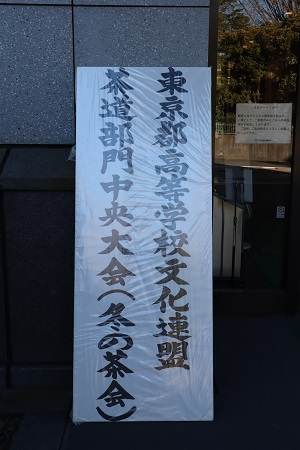 東京都高等学校文化連盟
茶道部門中央大会(冬の茶会)